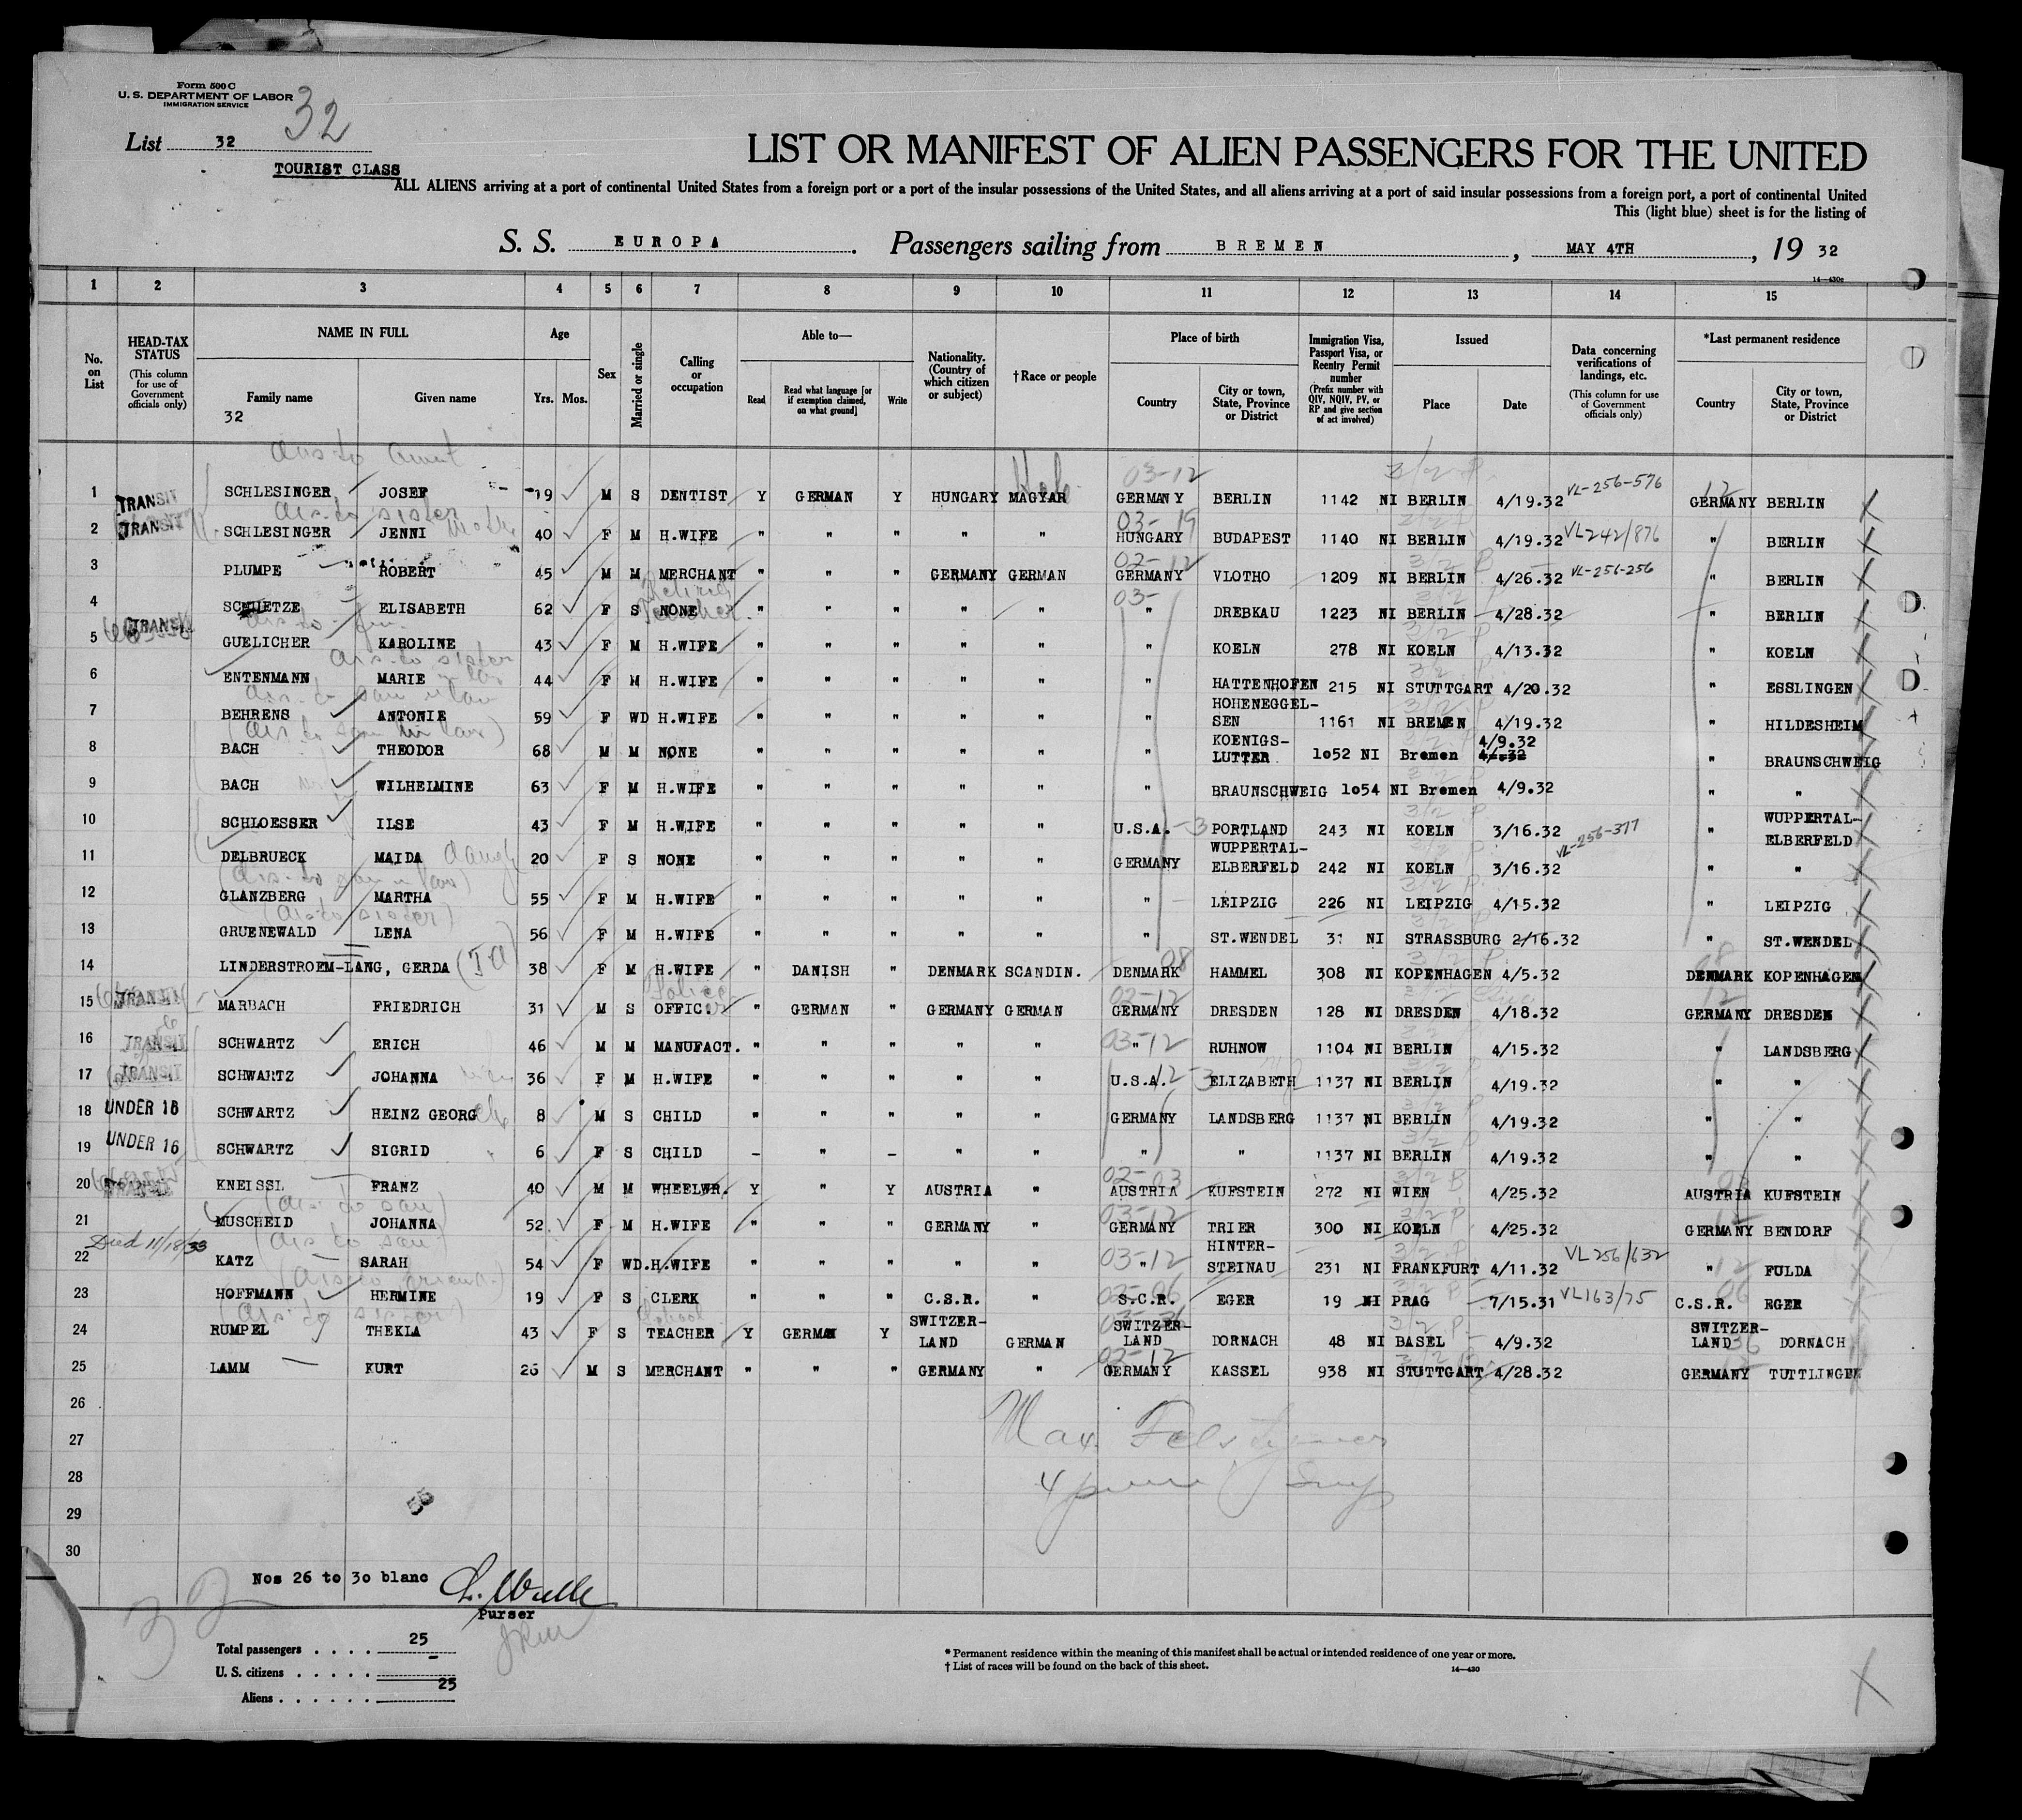 Form 500 C
U. S. DEPARTMENT OF LABOR
IMMIGRATION SERVICE
32
List 32
TOURIST CLASS
LIST OR MANIFEST OF ALIEN PASSENGERS FOR THE UNITED
ALL ALIENS arriving at a port of continental United States from a foreign port or a port of the insular possessions of the United States, and all aliens arriving at a port of said insular possessions from a foreign port, a port of continental United
This (light blue) sheet is for the listing of
S. S. EUROPA. Passengers sailing from BREMEN, MAY 4TH, 19 32
14—430c
1 2 3 4 5 6 7 8 9 10 11 12 13 14 15
No. on List
HEAD-TAX STATUS (This column for use of Government officials only)
NAME IN FULL Family name Given name
32
Age Yrs. Mos.
Sex
Married or single
Calling or occupation
Able to— Read Read what language [or if exemption claimed, on what ground] Write
Nationality. (Country of which citizen or subject)
†Race or people
Place of birth Country City or town, State, Province or District
Immigration Visa, Passport Visa, or Reentry Permit number (Prefix number with QIV, NQIV, PV, or RP and give section of act involved)
Issued Place Date
Data concerning verifications of landings, etc. (This column for use of Government officials only)
*Last permanent residence Country City or town, State, Province or District
Heb. 03-12
1 TRANSIT SCHLESINGER JOSEF 19 M S DENTIST Y GERMAN Y HUNGARY MAGYAR GERMANY BERLIN 1142 NI BERLIN 4/19.32 VL-256-576 GERMANY BERLIN
03-19
2 TRANSIT SCHLESINGER JENNI 40 F M H.WIFE " " " " " HUNGARY BUDAPEST 1140 NI BERLIN 4/19.32 VL242/876 " BERLIN
02-12
3 PLUMPE ROBERT 45 M M MERCHANT " " " GERMANY GERMAN GERMANY VLOTHO 1209 NI BERLIN 4/26.32 VL-256-256 " BERLIN
Retired Teacher. 03-
4 SCHUETZE ELISABETH 62 F S NONE " " " " " " DREBKAU 1223 NI BERLIN 4/28.32 " BERLIN
5 TRANSIT GUELICHER KAROLINE 43 F M H.WIFE " " " " " " KOELN 278 NI KOELN 4/13.32 " KOELN
6 ENTENMANN MARIE 44 F M H.WIFE " " " " " " HATTENHOFEN 215 NI STUTTGART 4/20.32 " ESSLINGEN
7 BEHRENS ANTONIE 59 F WD H.WIFE " " " " " " HOHENEGGEL-SEN 1161 NI BREMEN 4/19.32 " HILDESHEIM
8 BACH THEODOR 68 M M NONE " " " " " " KOENIGS-LUTTER 1052 NI Bremen 4/9.32 " BRAUNSCHWEIG
9 BACH WILHELMINE 63 F M H.WIFE " " " " " " BRAUNSCHWEIG 1054 NI Bremen 4/9.32 " "
10 SCHLOESSER ILSE 43 F M H.WIFE " " " " " U.S.A. PORTLAND 243 NI KOELN 3/16.32 " WUPPERTAL-ELBERFELD
11 DELBRUECK MAIDA 20 F S NONE " " " " " GERMANY WUPPERTAL-ELBERFELD 242 NI KOELN 3/16.32 VL-256-377 " "
12 GLANZBERG MARTHA 55 F M H.WIFE " " " " " " LEIPZIG 226 NI LEIPZIG 4/15.32 " LEIPZIG
(ais-to sister)
13 GRUENEWALD LENA 56 F M H.WIFE " " " " " " ST.WENDEL 31 NI STRASSBURG 2/16.32 " ST.WENDEL
14 LINDERSTROEM-LANG, GERDA 38 F M H.WIFE " DANISH " DENMARK SCANDIN. DENMARK HAMMEL 308 NI KOPENHAGEN 4/5.32 DENMARK KOPENHAGEN
Police 02-12
15 TRANSIT MARBACH FRIEDRICH 31 M S OFFIC. " GERMAN " GERMANY GERMAN GERMANY DRESDEN 128 NI DRESDEN 4/18.32 GERMANY DRESDEN
03-12
16 TRANSIT SCHWARTZ ERICH 46 M M MANUFACT. " " " " " " RUHNOW 1104 NI BERLIN 4/15.32 " LANDSBERG
17 TRANSIT SCHWARTZ JOHANNA 36 F M H.WIFE " " " " " U.S.A. ELIZABETH 1137 NI BERLIN 4/19.32 " "
18 UNDER 16 SCHWARTZ HEINZ GEORG 8 M S CHILD " " " " " GERMANY LANDSBERG 1137 NI BERLIN 4/19.32 " "
19 UNDER 16 SCHWARTZ SIGRID 6 F S CHILD — " — " " " " 1137 NI BERLIN 4/19.32 " "
02-03
20 TRANSIT KNEISSL FRANZ 40 M M WHEELWR. Y " Y AUSTRIA " AUSTRIA KUFSTEIN 272 NI WIEN 4/25.32 AUSTRIA KUFSTEIN
03-12
21 MUSCHEID JOHANNA 52 F M H.WIFE " " " GERMANY " GERMANY TRIER 300 NI KOELN 4/25.32 GERMANY BENDORF
Died 11/18/33
22 KATZ SARAH 54 F WD. H.WIFE " " " " " " 03-12 HINTER-STEINAU 231 NI FRANKFURT 4/11.32 VL256/632 " FULDA
23 HOFFMANN HERMINE 19 F S CLERK " " " C.S.R. " S.C.R. EGER 19 NI PRAG 7/15.31 VL163/75 C.S.R. EGER
School
24 RUMPEL THEKLA 43 F S TEACHER Y GERMAN Y SWITZER-LAND GERMAN SWITZER-LAND DORNACH 48 NI BASEL 4/9.32 SWITZER-LAND DORNACH
02-12
25 LAMM KURT 26 M S MERCHANT " " " GERMANY " GERMANY KASSEL 938 NI STUTTGART 4/28.32 GERMANY TUTTLINGEN
26
27 Max
28
29
30
Nos 26 to 30 blanc
Purser
Total passengers . . . . 25
U. S. citizens . . . . . –
Aliens . . . . . . 25
* Permanent residence within the meaning of this manifest shall be actual or intended residence of one year or more.
† List of races will be found on the back of this sheet.
14—430